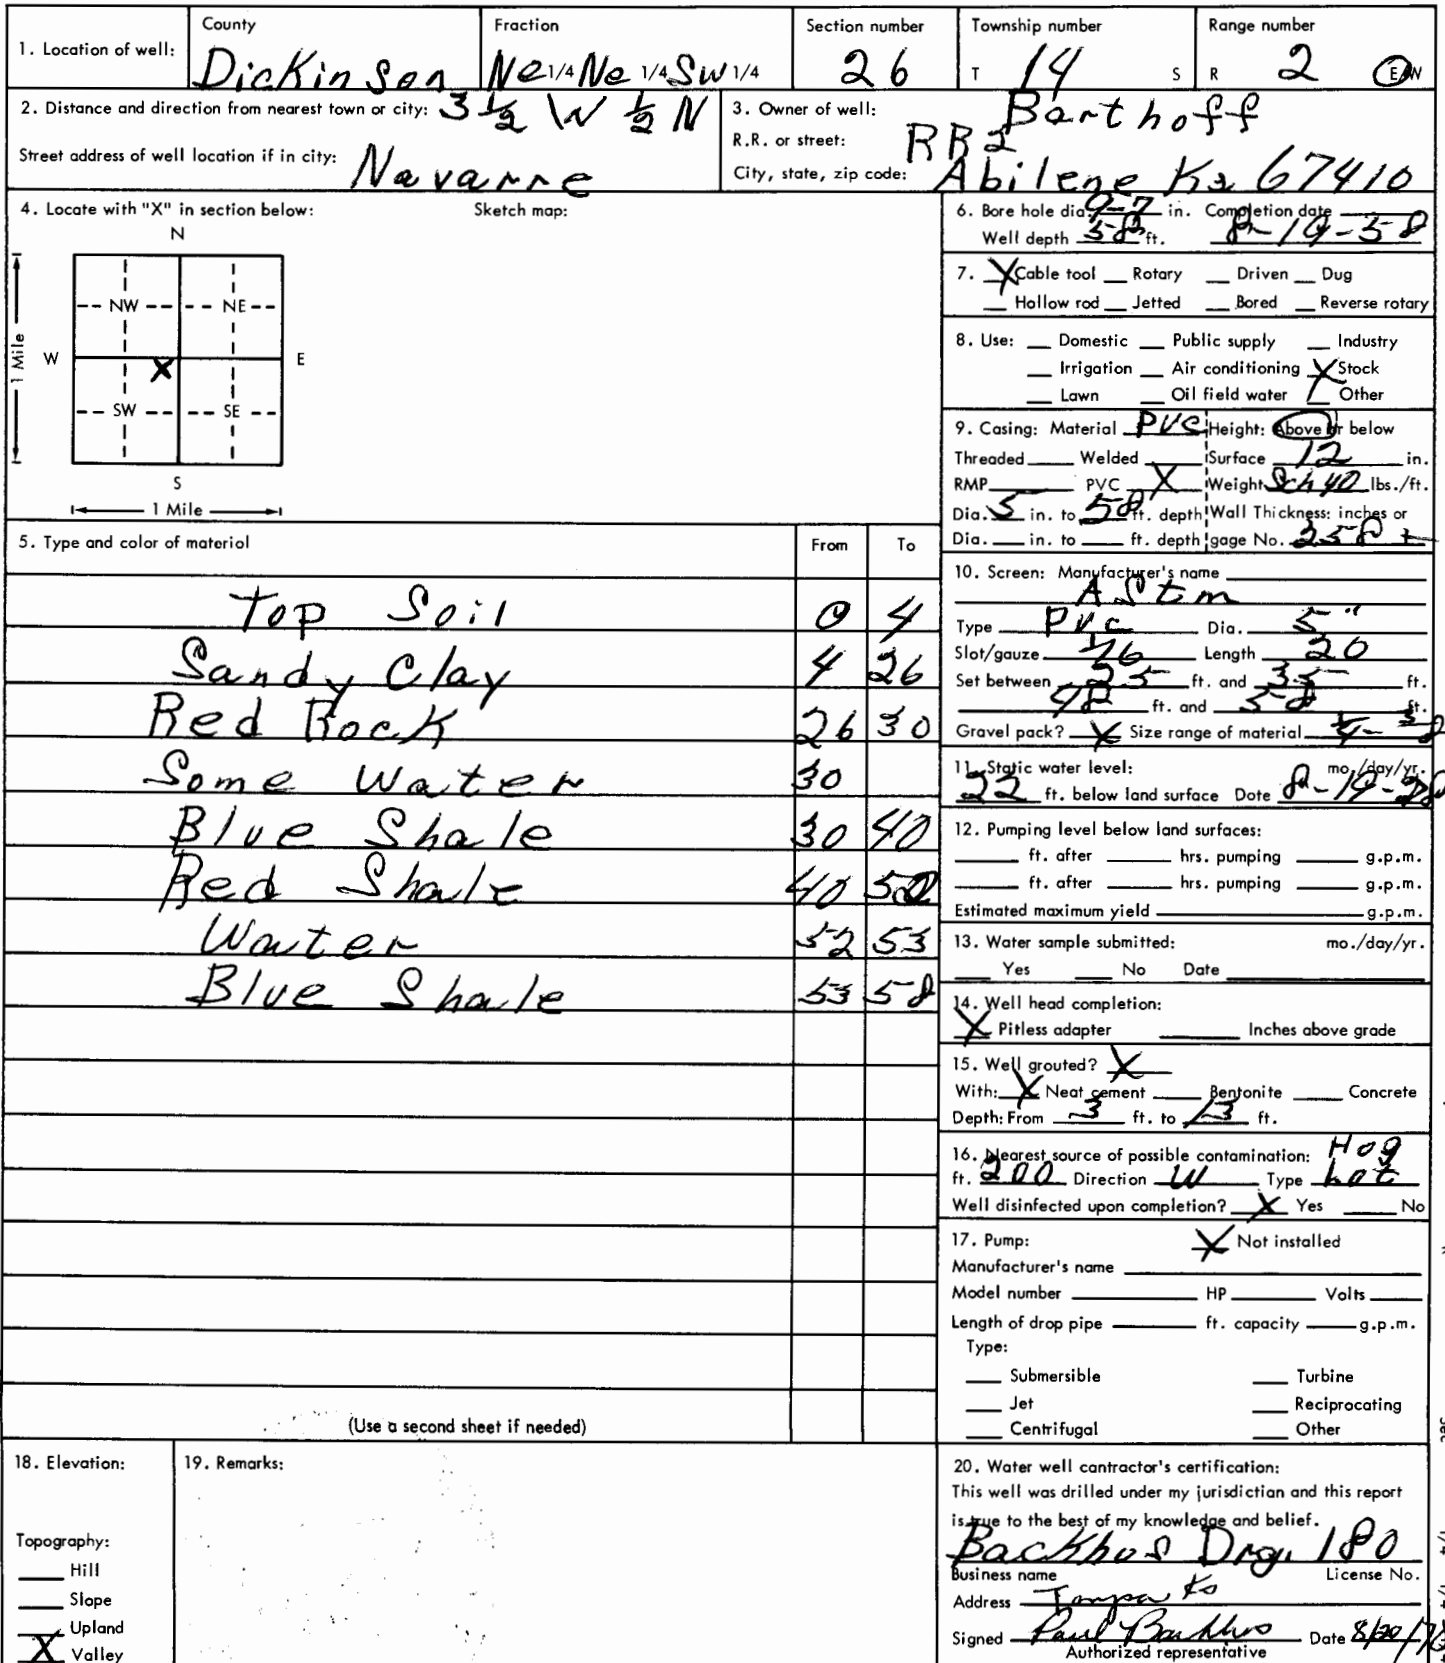 1. Location of well: County Dickinson Fraction Ne 1/4 Ne 1/4 Sw 1/4 Section number 26 Township number T 14 S Range number R 2 E/W
2. Distance and direction from nearest town or city: 3 1/2 W 1/2 N
Street address of well location if in city: Navarre
3. Owner of well: Barthoff
R.R. or street: RR2
City, state, zip code: Abilene Ks 67410
4. Locate with "X" in section below: Sketch map:
N
NW NE
W X E
SW SE
S
1 Mile
1 Mile
5. Type and color of material From To
Top Soil 0 4
Sandy Clay 4 26
Red Rock 26 30
Some Water 30
Blue Shale 30 40
Red Shale 40 52
Water 52 53
Blue Shale 53 58
(Use a second sheet if needed)
6. Bore hole dia. 9-7 in. Completion date
Well depth 58 ft. 8-19-58
7. X Cable tool Rotary Driven Dug
Hollow rod Jetted Bored Reverse rotary
8. Use: Domestic Public supply Industry
Irrigation Air conditioning X Stock
Lawn Oil field water Other
9. Casing: Material PVC Height: Above or below
Threaded Welded Surface 12 in.
RMP PVC X Weight Sch 40 lbs./ft.
Dia. 5 in. to 58 ft. depth Wall Thickness: inches or
Dia. in. to ft. depth gage No. 258
10. Screen: Manufacturer's name
AStm
Type PVC Dia. 5"
Slot/gauze 1/16 Length 20
Set between 25 ft. and 35 ft.
48 ft. and 58 ft.
Gravel pack? X Size range of material
11. Static water level: mo./day/yr.
22 ft. below land surface Date 8-19-
12. Pumping level below land surfaces:
ft. after hrs. pumping g.p.m.
ft. after hrs. pumping g.p.m.
Estimated maximum yield g.p.m.
13. Water sample submitted: mo./day/yr.
Yes No Date
14. Well head completion:
X Pitless adapter Inches above grade
15. Well grouted? X
With: X Neat cement Bentonite Concrete
Depth: From 3 ft. to 13 ft.
16. Nearest source of possible contamination: Hog
ft. 200 Direction W Type Lot
Well disinfected upon completion? X Yes No
17. Pump: X Not installed
Manufacturer's name
Model number HP Volts
Length of drop pipe ft. capacity g.p.m.
Type:
Submersible Turbine
Jet Reciprocating
Centrifugal Other
18. Elevation:
Topography:
Hill
Slope
Upland
X Valley
19. Remarks:
20. Water well contractor's certification:
This well was drilled under my jurisdiction and this report
is true to the best of my knowledge and belief.
Backhus Drg. 180
Business name License No.
Address Tampa Ks
Signed Paul Backhus Date 8/20/78
Authorized representative